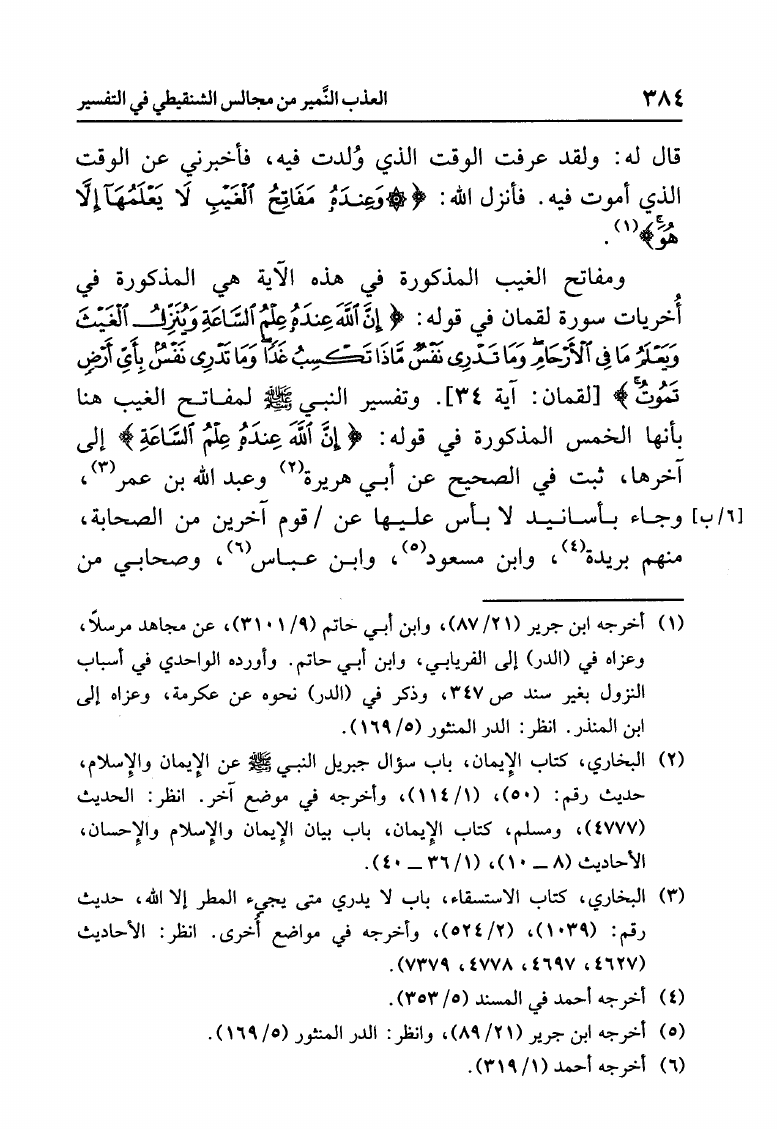 ٣٨٤ العذب النَّمير من مجالس الشنقيطي في التفسير
قال له: ولقد عرفت الوقت الذي وُلدت فيه، فأخبرني عن الوقت
الذي أموت فيه. فأنزل الله: ﴿۞وَعِندَهُۥ مَفَاتِحُ ٱلْغَيْبِ لَا يَعْلَمُهَآ إِلَّا
هُوَۚ﴾(١).
ومفاتح الغيب المذكورة في هذه الآية هي المذكورة في
أُخريات سورة لقمان في قوله: ﴿إِنَّ ٱللَّهَ عِندَهُۥ عِلْمُ ٱلسَّاعَةِ وَيُنَزِّلُ ٱلْغَيْثَ
وَيَعْلَمُ مَا فِى ٱلْأَرْحَامِۖ وَمَا تَدْرِى نَفْسٌ مَّاذَا تَكْسِبُ غَدًاۖ وَمَا تَدْرِى نَفْسٌۢ بِأَىِّ أَرْضٍ
تَمُوتُۚ﴾ [لقمان: آية ٣٤]. وتفسير النبي ﷺ لمفاتح الغيب هنا
بأنها الخمس المذكورة في قوله: ﴿إِنَّ ٱللَّهَ عِندَهُۥ عِلْمُ ٱلسَّاعَةِ﴾ إلى
آخرها، ثبت في الصحيح عن أبي هريرة(٢) وعبد الله بن عمر(٣)،
[٦/ب] وجاء بأسانيد لا بأس عليها عن / قوم آخرين من الصحابة،
منهم بريدة(٤)، وابن مسعود(٥)، وابن عباس(٦)، وصحابي من
(١) أخرجه ابن جرير (٨٧/٢١)، وابن أبي حاتم (٣١٠١/٩)، عن مجاهد مرسلاً،
وعزاه في (الدر) إلى الفريابي، وابن أبي حاتم. وأورده الواحدي في أسباب
النزول بغير سند ص٣٤٧، وذكر في (الدر) نحوه عن عكرمة، وعزاه إلى
ابن المنذر. انظر: الدر المنثور (١٦٩/٥).
(٢) البخاري، كتاب الإيمان، باب سؤال جبريل النبي ﷺ عن الإيمان والإسلام،
حديث رقم: (٥٠)، (١١٤/١)، وأخرجه في موضع آخر. انظر: الحديث
(٤٧٧٧)، ومسلم، كتاب الإيمان، باب بيان الإيمان والإسلام والإحسان،
الأحاديث (٨ ــ ١٠)، (٣٦/١ ــ ٤٠).
(٣) البخاري، كتاب الاستسقاء، باب لا يدري متى يجيء المطر إلا الله، حديث
رقم: (١٠٣٩)، (٥٢٤/٢)، وأخرجه في مواضع أُخرى. انظر: الأحاديث
(٤٦٢٧، ٤٦٩٧، ٤٧٧٨، ٧٣٧٩).
(٤) أخرجه أحمد في المسند (٣٥٣/٥).
(٥) أخرجه ابن جرير (٨٩/٢١)، وانظر: الدر المنثور (١٦٩/٥).
(٦) أخرجه أحمد (٣١٩/١).